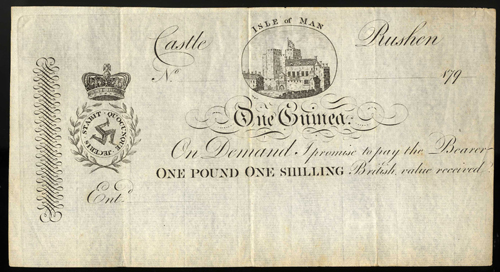 ISLE of MAN
Castle Rushen
No 179
STABIT QUOCUNQUE JECERIS
One Guinea.
On Demand I promise to pay the Bearer
ONE POUND ONE SHILLING British, value received
Entd.